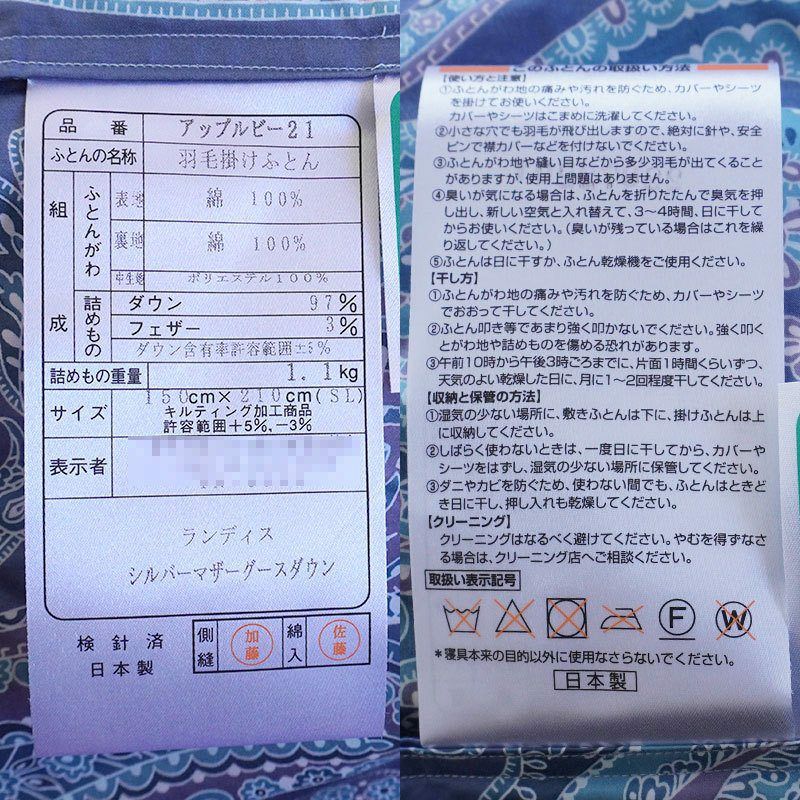 品番 アップルビー21
ふとんの名称 羽毛掛けふとん
組成
ふとんがわ
表地 綿 100%
裏地 綿 100%
ポリエステル100%
詰めもの
ダウン 97%
フェザー 3%
ダウン含有率許容範囲±5%
詰めもの重量 1.1kg
サイズ
150cm×210cm(SL)
キルティング加工商品
許容範囲+5%,−3%
表示者
ランディス
シルバーマザーグースダウン
検針済
日本製
側縫 加藤 綿入 佐藤
このふとんの取扱い方法
【使い方と注意】
①ふとんがわ地の痛みや汚れを防ぐため、カバーやシーツ
を掛けてお使いください。
カバーやシーツはこまめに洗濯してください。
②小さな穴でも羽毛が飛び出しますので、絶対に針や、安全
ピンで襟カバーなどを付けないでください。
③ふとんがわ地や縫い目などから多少羽毛が出てくること
がありますが、使用上問題はありません。
④臭いが気になる場合は、ふとんを折りたたんで臭気を押
し出し、新しい空気と入れ替えて、3〜4時間、日に干して
からお使いください。(臭いが残っている場合はこれを繰
り返してください。)
⑤ふとんは日に干すか、ふとん乾燥機をご使用ください。
【干し方】
①ふとんがわ地の痛みや汚れを防ぐため、カバーやシーツ
でおおって干してください。
②ふとん叩き等であまり強く叩かないでください。強く叩く
とがわ地や詰めものを傷める恐れがあります。
③午前10時から午後3時ごろまでに、片面1時間くらいずつ、
天気のよい乾燥した日に、月に1〜2回程度干してください。
【収納と保管の方法】
①湿気の少ない場所に、敷きふとんは下に、掛けふとんは上
に収納してください。
②しばらく使わないときは、一度日に干してから、カバーや
シーツをはずし、湿気の少ない場所に保管してください。
③ダニやカビを防ぐため、使わない間でも、ふとんはときど
き日に干し、押し入れも乾燥してください。
【クリーニング】
クリーニングはなるべく避けてください。やむを得ずなさ
る場合は、クリーニング店へご相談ください。
取扱い表示記号
F W
*寝具本来の目的以外に使用なさらないでください。
日本製